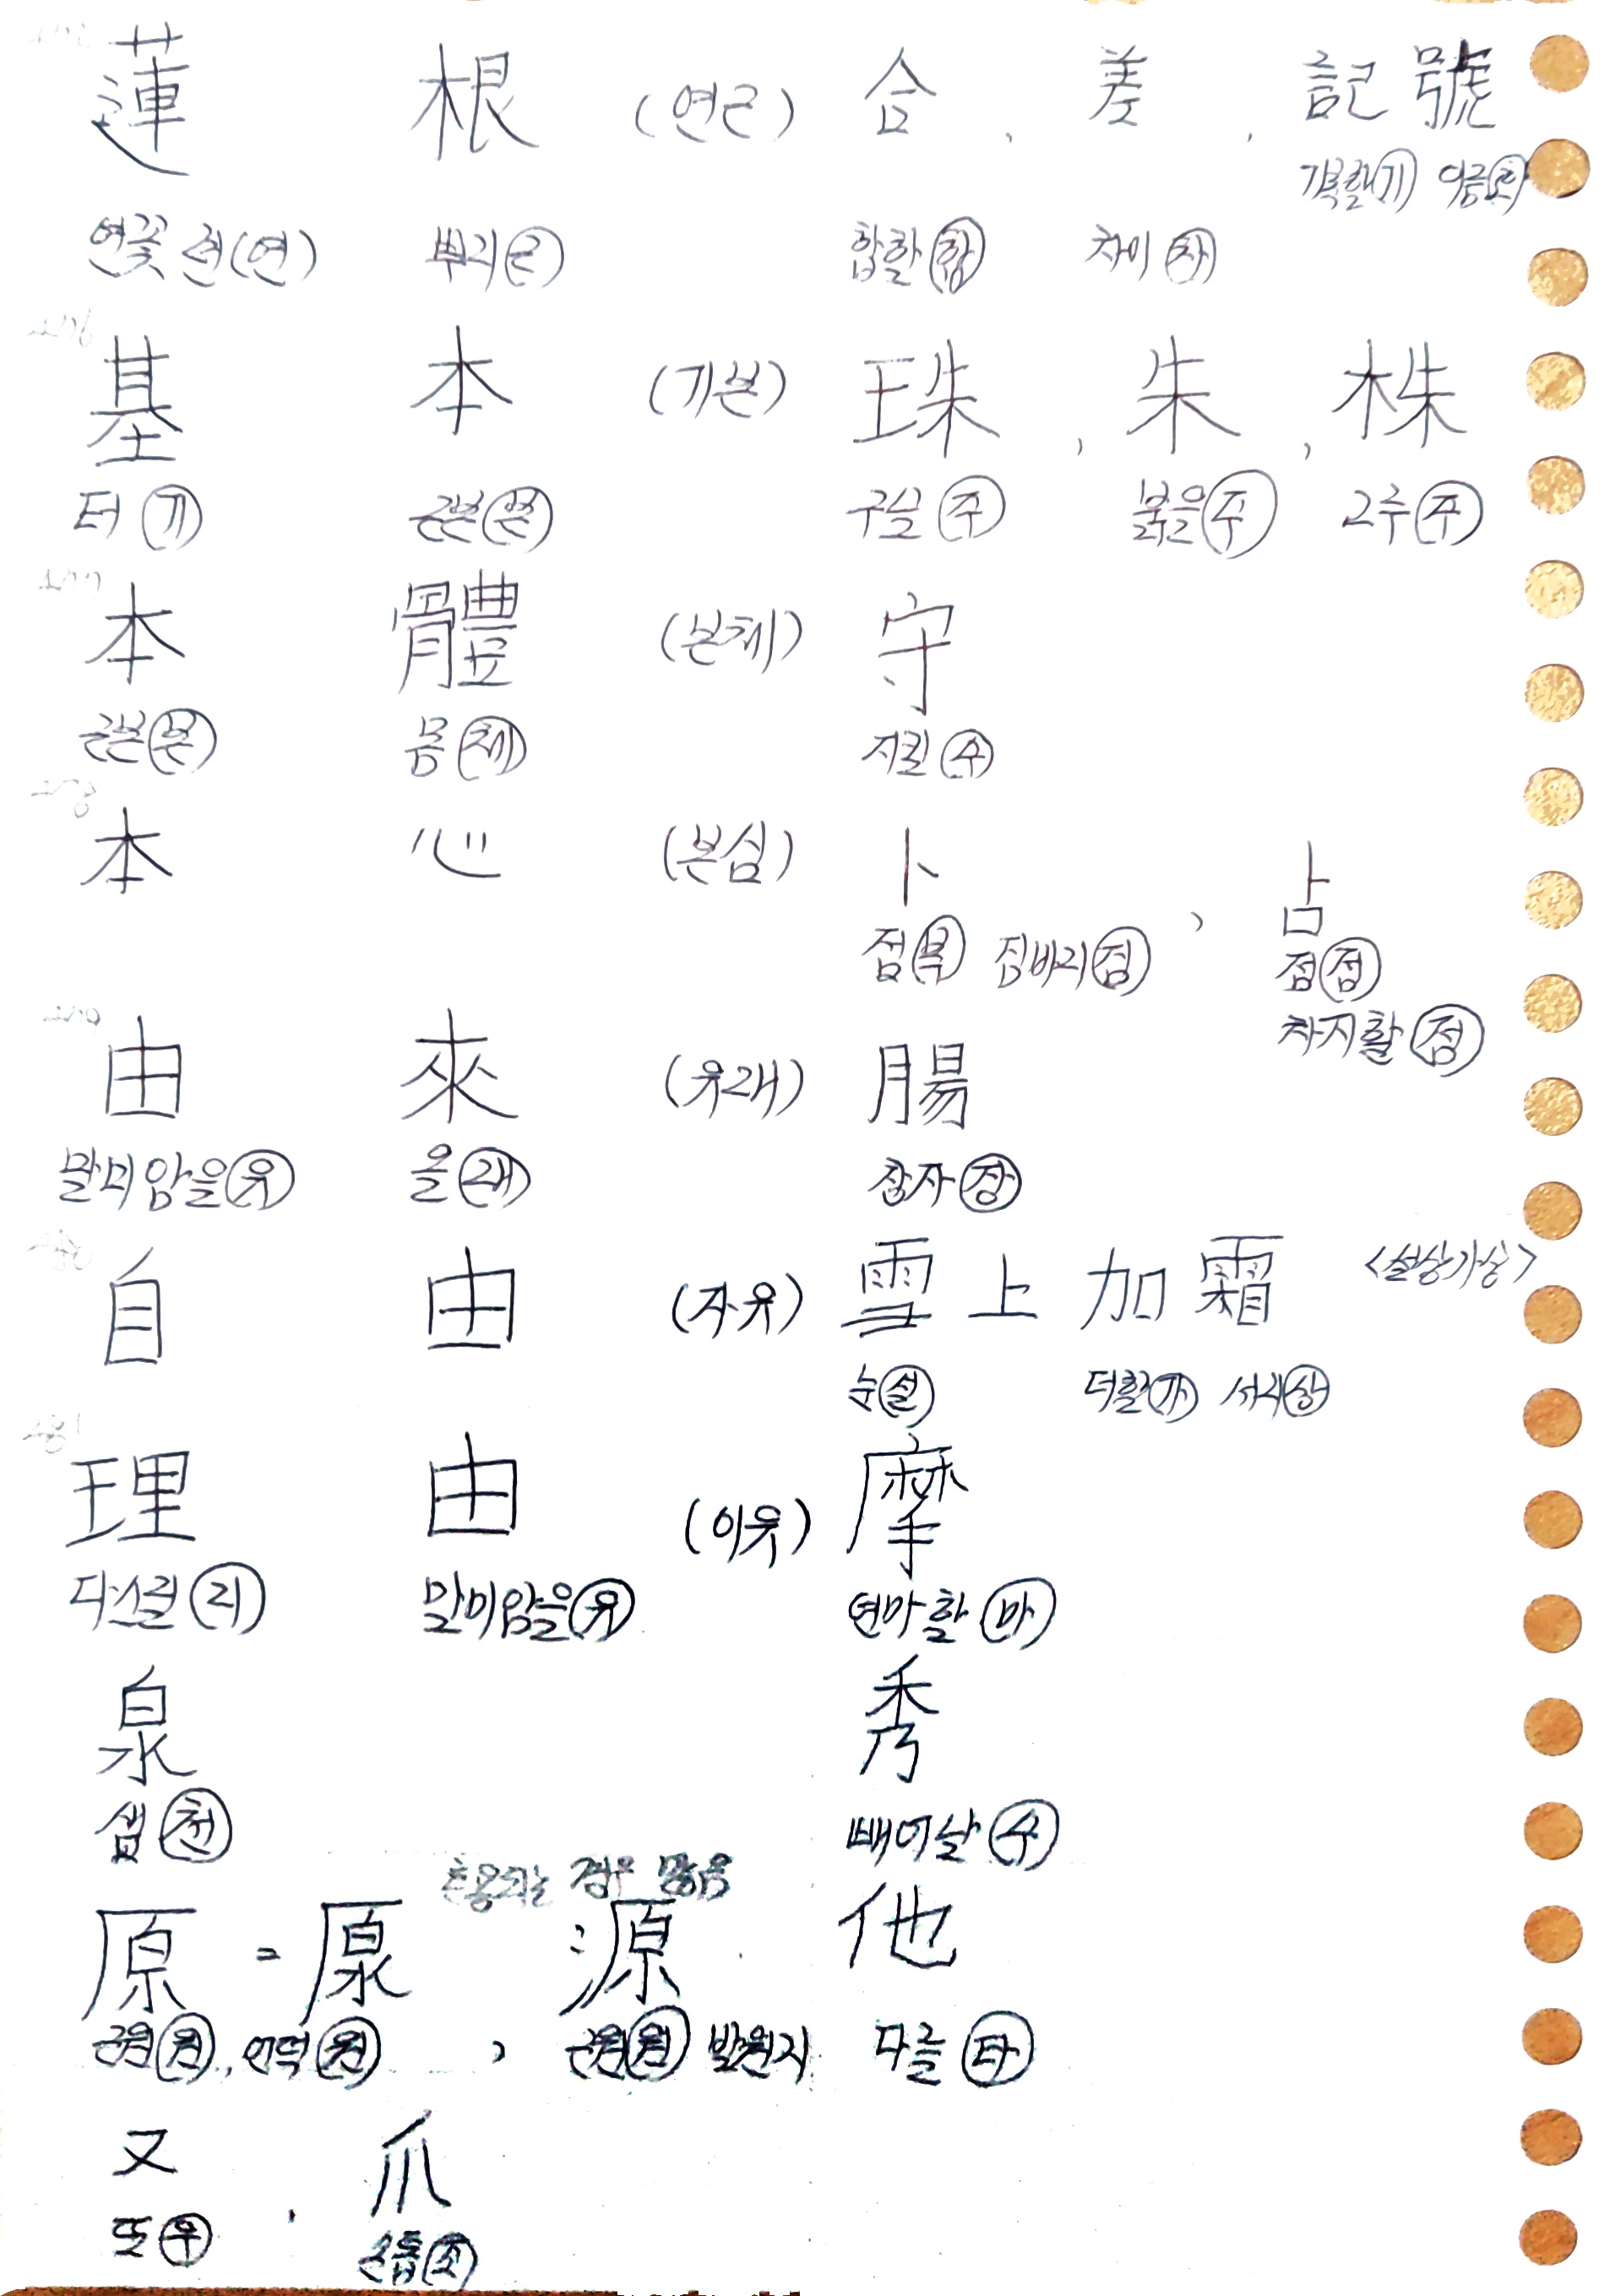 蓮 根 (연근) 合 , 差 , 記 號
기록할 기
연꽃 련(연) 뿌리 근 합할 합 차이 차
基 本 (기본) 珠 , 朱 , 株
터 기 근본 본 구슬 주 붉을 주 그루 주
本 體 (본체) 守
근본 본 몸 체 지킬 수
本 心 (본심) 卜 , 占
점 복 짐바리 짐 점 점
차지할 점
由 來 (유래) 腸
말미암을 유 올 래 창자 장
自 由 (자유) 雪 上 加 霜 <설상가상>
눈 설 더할 가 서리 상
理 由 (이유) 摩
다스릴 리 말미암을 유 연마할 마
泉 秀
샘 천 빼어날 수
혼용되는 경우 많음
原 = 厡 源 他
근원 원, 언덕 원 , 근원 원 발원지 다를 타
又 , 爪
또 우 손톱 조